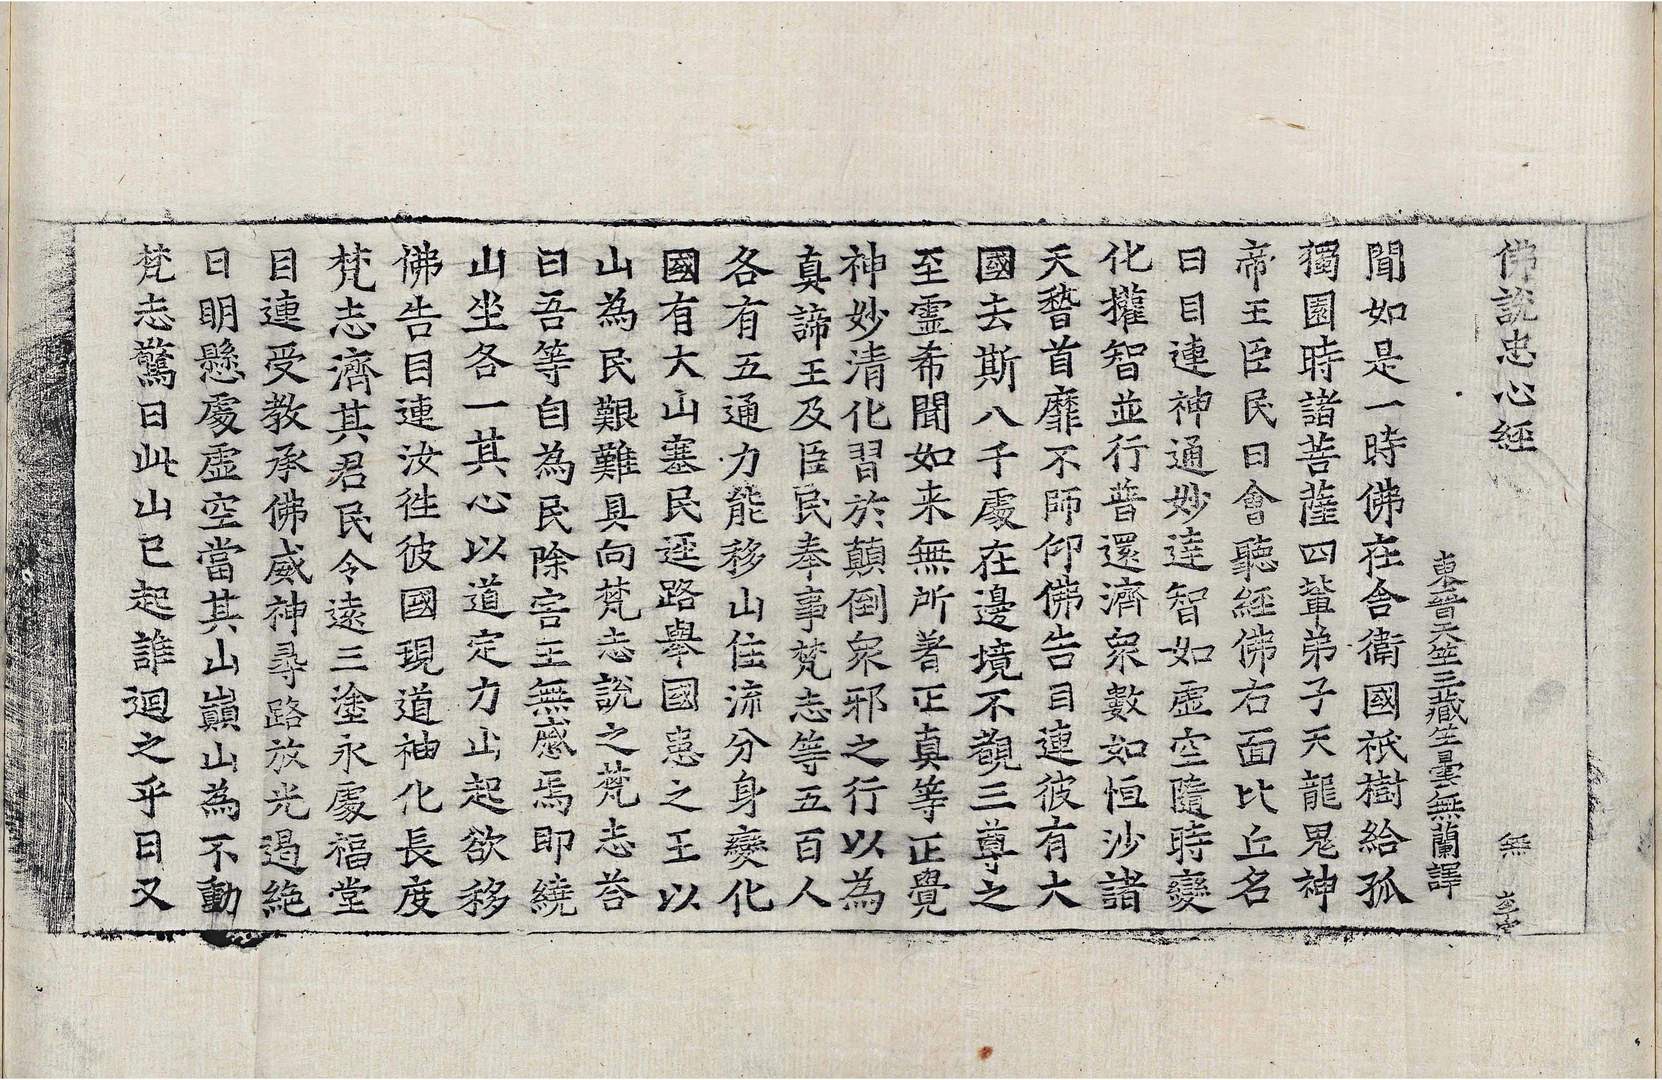 佛說忠心經
無
東晉天竺三藏竺曇無蘭譯
聞如是一時佛在舍衛國祇樹給孤
獨園時諸菩薩四輩弟子天龍鬼神
帝王臣民日會聽經佛右面比丘名
曰目連神通妙達智如虛空隨時變
化權智並行普還濟衆數如恒沙諸
天稽首靡不師仰佛告目連彼有大
國去斯八千處在邊境不覩三尊之
至靈希聞如来無所著正真等正覺
神妙清化習於顛倒衆邪之行以為
真諦王及臣民奉事梵志等五百人
各有五通力能移山住流分身變化
國有大山塞民逕路舉國患之王以
山為民艱難具向梵志說之梵志荅
曰吾等自為民除害王無慼焉即繞
山坐各一其心以道定力山起欲移
佛告目連汝徃彼國現道神化長度
梵志濟其君民令遠三塗永處福堂
目連受教承佛威神尋路放光過絶
日明懸處虛空當其山巓山為不動
梵志驚曰此山已起誰迴之乎日又